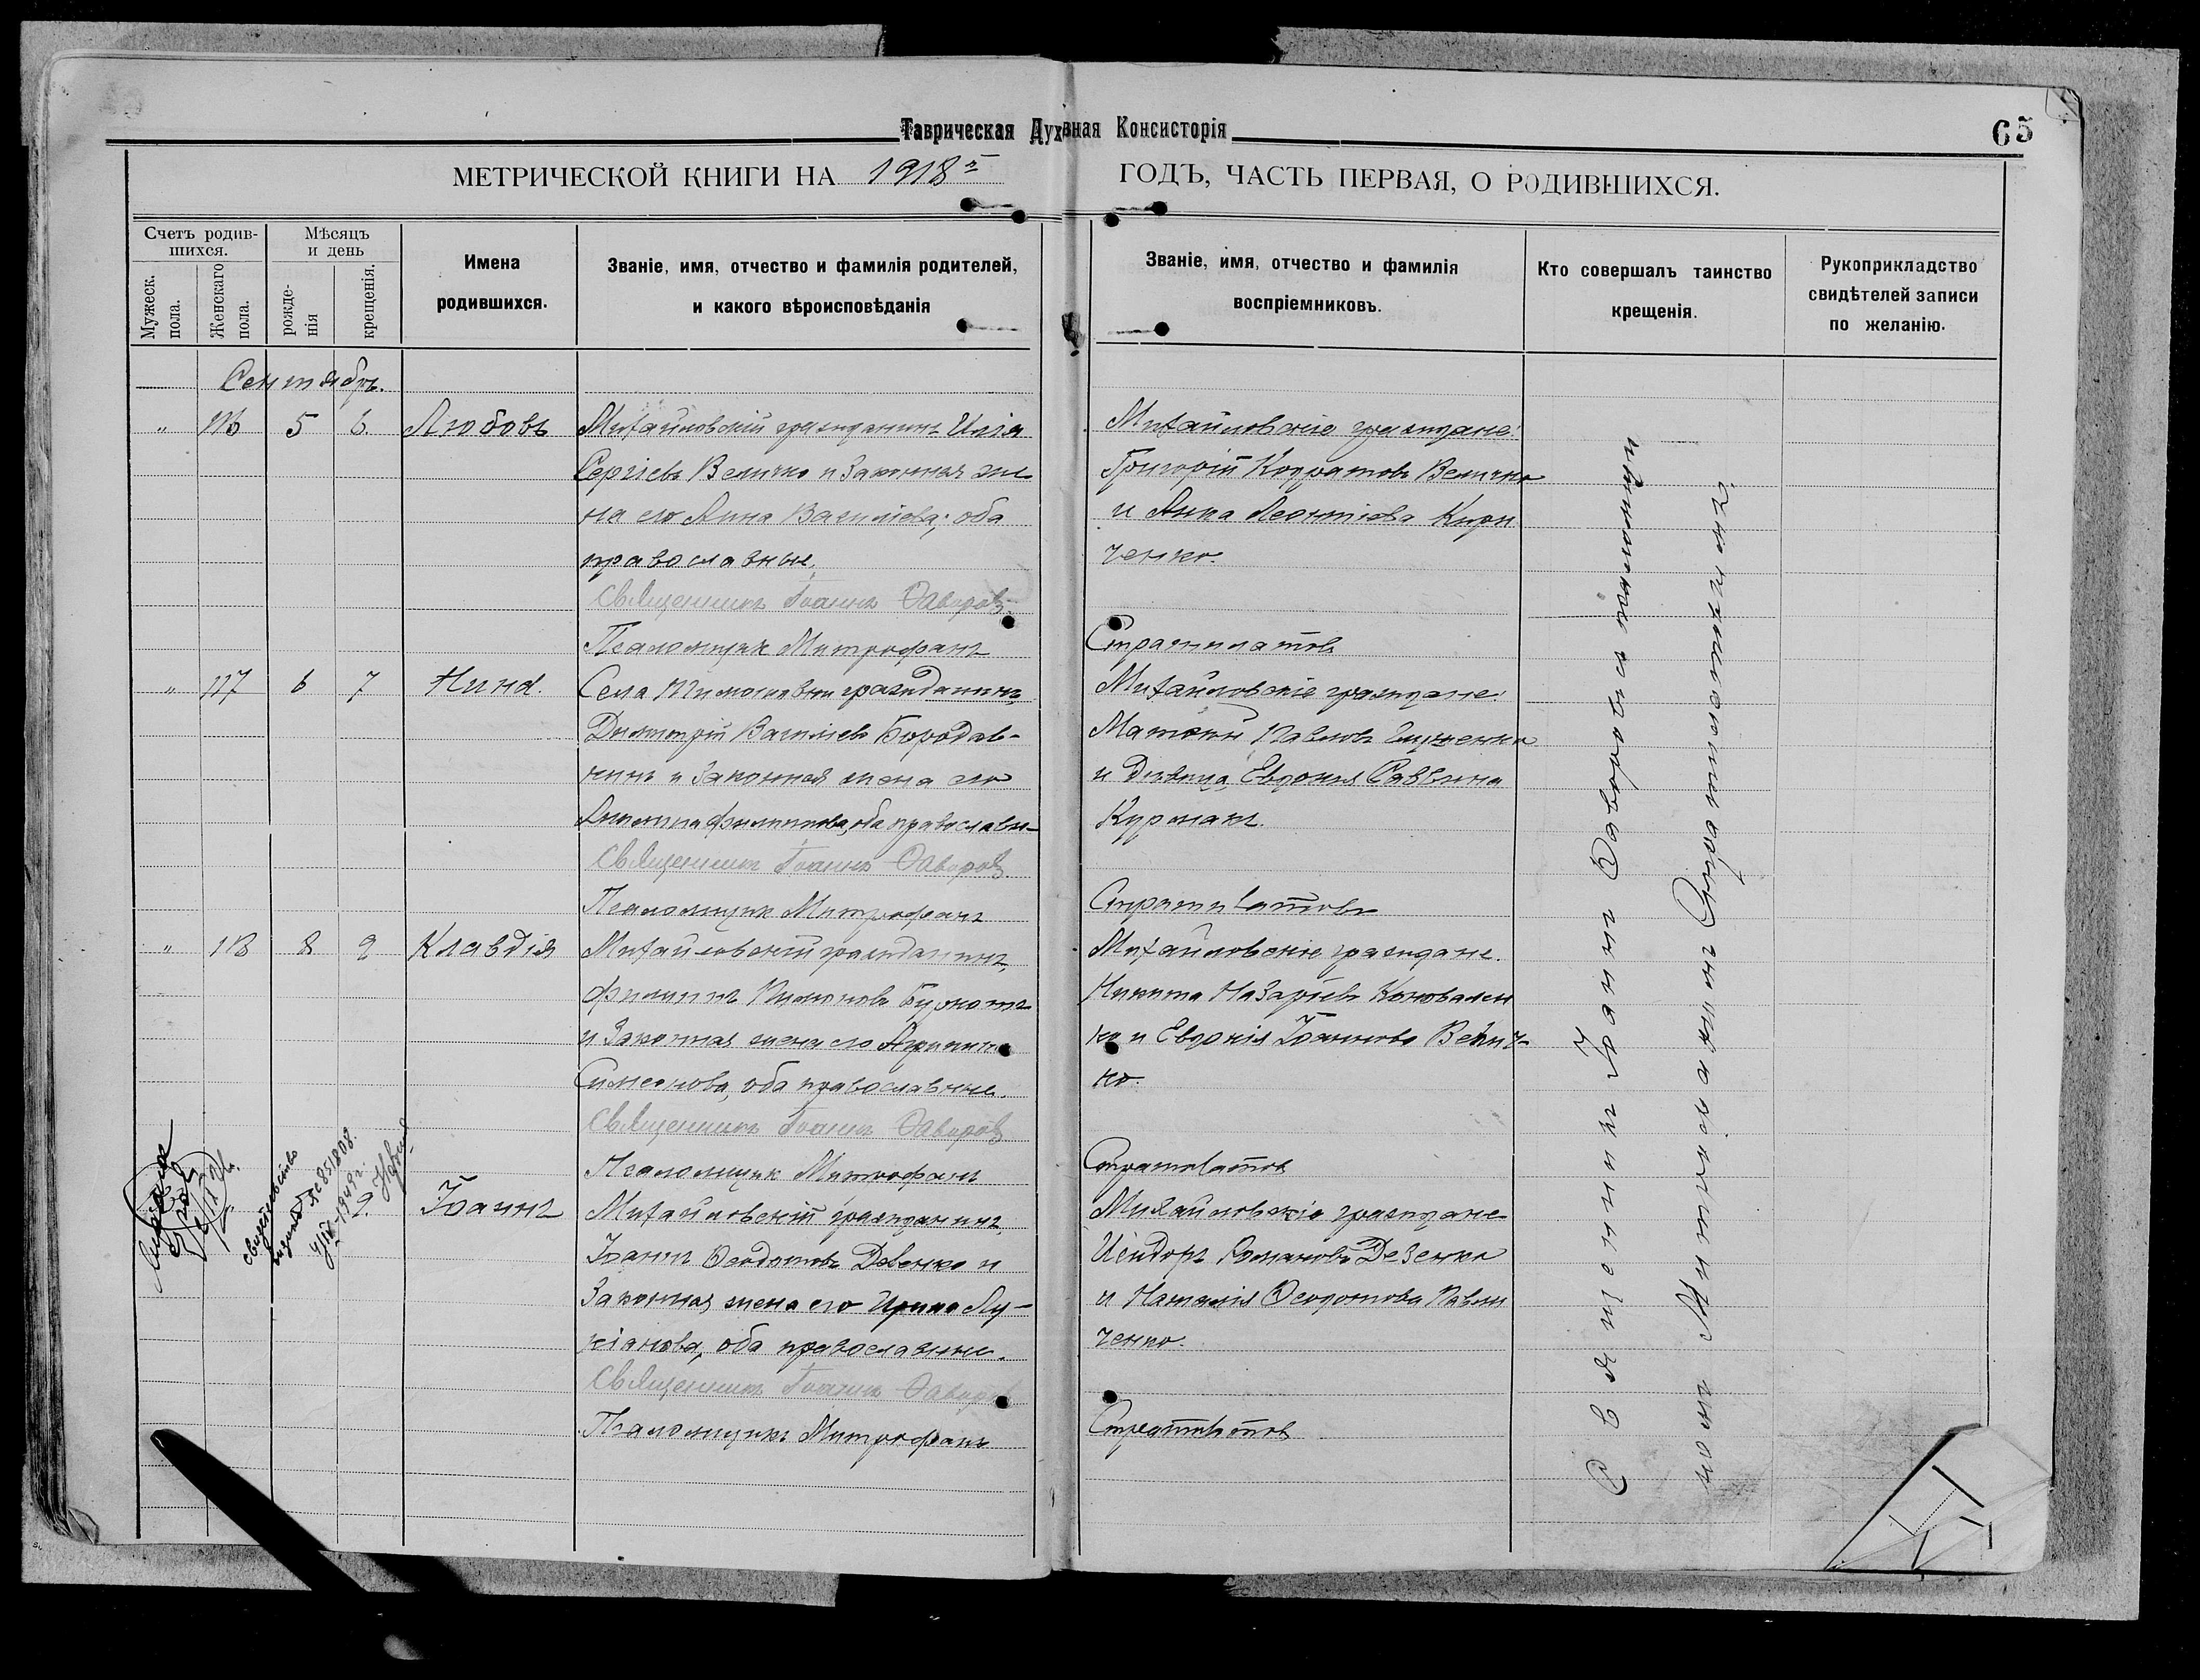 Таврическая Духовная Консисторія
65
МЕТРИЧЕСКОЙ КНИГИ НА 1918й ГОДЪ, ЧАСТЬ ПЕРВАЯ, О РОДИВШИХСЯ.
Счетъ родив-
шихся.
Мужеск.
пола.
Женскаго
пола.
Мѣсяцъ
и день
рожде-
нія
крещенія.
Имена
родившихся.
Званіе, имя, отчество и фамилія родителей,
и какого вѣроисповѣданія
Званіе, имя, отчество и фамилія
воспріемниковъ.
Кто совершалъ таинство
крещенія.
Рукоприкладство
свидѣтелей записи
по желанію.
Сентябрь.
" 116 5 6. Любовь
Михайловскій гражданинъ Илія
Сергіевъ Величко и законная же-
на его Анна Василіева; оба
православные.
Священникъ Іоаннъ Ѳаворовъ
Псаломщикъ Митрофанъ
Михайловскіе граждане:
Григорій Кодратовъ Величко
и Анна Леонтіева Кири
ченко.
Стратилатовъ
" 117 6 7 Нина.
Села Тимошевки гражданинъ
Димитрій Василіевъ Бородав-
кинъ и законная жена его
Филиппова, оба православн-
Священникъ Іоаннъ Ѳаворовъ
Псаломщикъ Митрофанъ
Михайловскіе граждане:
Матѳей Павловъ Глущенко
и дѣвица Евдокія Саввина
Курмазъ.
Стратилатовъ
" 118 8 9 Клавдія
Михайловскій гражданинъ,
Филиппъ Бурнотъ
и законная жена его Агрипина
Симеонова, оба православные.
Священникъ Іоаннъ Ѳаворовъ
Псаломщикъ Митрофанъ
Михайловскіе граждане.
Никита Назаріевъ Коновален
ко и Евдокія Іоаннова Велич-
ко.
Стратилатовъ
свидетельство
выдано № 851808.
1949 г.
9. Іоаннъ
Михайловскій гражданинъ,
Іоаннъ Ѳеодотовъ Дзвенко и
законная жена его Ирина Лу-
кіанова, оба православные.
Священникъ Іоаннъ Ѳаворовъ
Псаломщикъ Митрофанъ
Михайловскіе граждане
Исидоръ Романовъ Дзенко
и Наталія Ѳеодотова Павли
ченко.
Стратилатовъ
Священникъ Іоаннъ Ѳаворовъ съ псаломщи
комъ Митрофаномъ Стратилатовымъ.